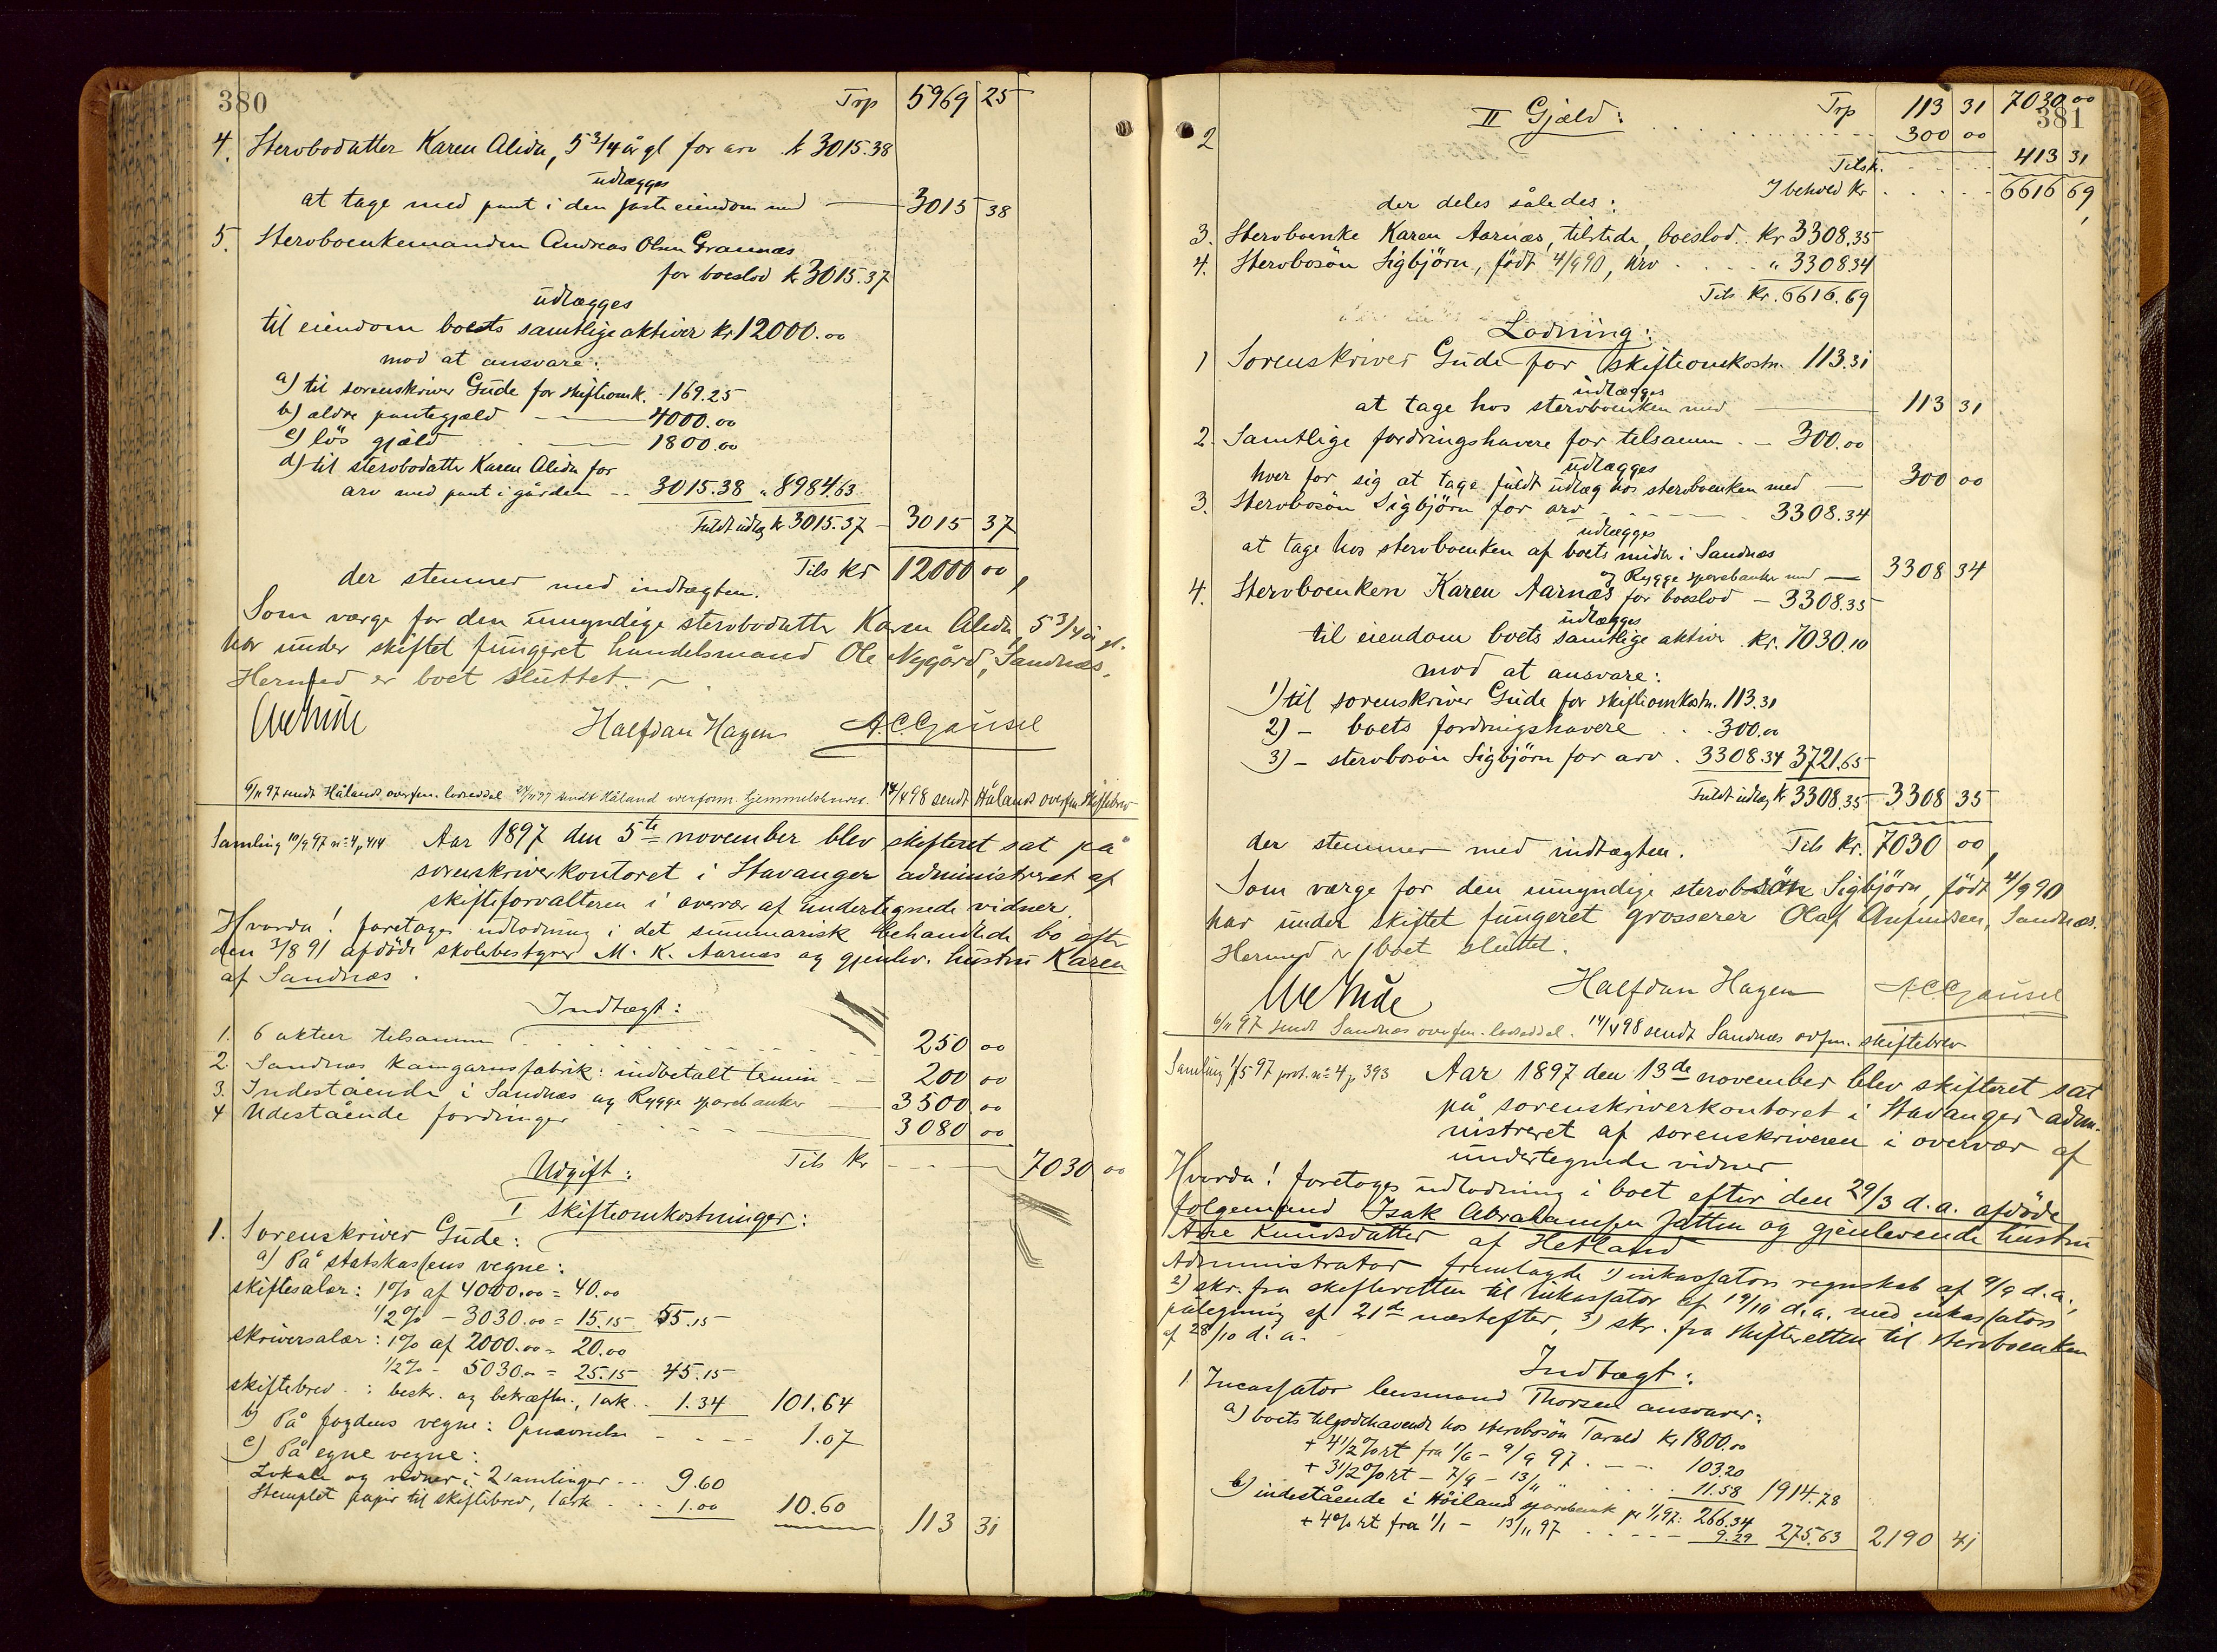 380
Trp 5969 25
4. Stervbodatter Karen Alida, 5 3/4 år gl for arv k 3015.38
udlægges
at tage med pant i den faste eiendom med — 3015 38
5. Stervboenkemanden Andreas Olsen Grannæs
for boeslod k 3015.37
udlægges
til eiendom boets samtlige aktiver kr 12000.00
mod at ansvare:
a) til sorenskriver Gude for skifteomk. - 169.25
b) ældre pantegjæld — 4000.00
c) løs gjæld — 1800.00
d) til stervbodatter Karen Alida for
arv med pant i gården -- 3015.38 " 8984.63
Fuldt udlæg k 3015.37 - 3015 37
Tils kr 12000 00
der stemmer med indtægten.
Som værge for den umyndige stervbodatter Karen Alida, 5 3/4 år gl.
har under skiftet fungeret handelsmand Ole Nygård, Sandnæs.
Hermed er boet sluttet.
Halfdan Hagen A.C. Gausel
6/11 97 sendt Hålands overfm. lodseddel 14/4 98 sendt Hålands overfm. skiftebrev
Samling 10/9 97 nr 4 p 414 Aar 1897 den 5te november blev skifteret sat på
sorenskriverkontoret i Stavanger administreret af
skifteforvalteren i overvær af undertegnede vidner.
Hvorda! foretages udlodning i det summarisk behandlede bo efter
den 3/8 91 afdøde skolebestyrer M. K. Aarnæs og gjenlev. hustru Karen
af Sandnæs.
Indtægt:
1. 6 aktier tilsammen 250 00
2. Sandnæs Kamgarnsfabrik: indbetalt termin - 200 00
3. Indestående i Sandnæs og Rygge sparebanker — 3500 00
4 Udestående fordringer 3080 00
Tils kr 7030 00
Udgift:
I Skifteomkostninger:
1. Sorenskriver Gude:
a) På statskassens vegne:
skiftesalær: 1% af 4000.00 = 40.00
1/2% - 3030.00 = 15.15 55.15
skriversalær: 1% af 2000.00 = 20.00
1/2% - 5030.00 = 25.15 45.15
skiftebrev: beskr. og bekræftn., 1 ark 1.34 101.64
b) På fogdens vegne: Opnævnelse 1.07
c) På egne vegne:
Lokale og vidner i 2 samlinger 9.60
Stemplet papir til skiftebrev, 1 ark 1.00 10.60
113 31
381
II Gjæld: Trp 113 31 7030 00
2 300 00
Tilsk. 413 31
I behold kr 6616 69
der deles således:
3. Stervboenke Karen Aarnæs, tilstede, boeslod. kr 3308.35
4. Stervbosøn Sigbjørn, født 4/9 90, arv " 3308 34
Tils kr. 6616.69
Lodning:
1 Sorenskriver Gude for skifteomkostn. 113.31
udlægges
at tage hos stervboenken med — 113 31
2. Samtlige fordringshavere for tilsamm. - 300.00
udlægges
hver for sig at tage fuldt udlæg hos stervboenken med — 300 00
3. Stervbosøn Sigbjørn for arv 3308.34
udlægges
at tage hos stervboenken af boets midler i Sandnæs
og Rygge sparebanker med — 3308 34
4. Stervboenken Karen Aarnæs for boeslod - 3308.35
udlægges
til eiendom boets samtlige aktiver kr. 7030.10
mod at ansvare:
1) til sorenskriver Gude for skifteomkostn. 113.31
2) - boets fordringshavere 300.00
3) - stervbosøn Sigbjørn for arv 3308.34 3721.65
Fuldt udlæg k 3308.35 - 3308 35
der stemmer med indtægten. Tils kr. 7030 00
Som værge for den umyndige stervbosøn Sigbjørn, født 4/9 90
har under skiftet fungeret grosserer Olaf Anfindsen, Sandnæs.
Hermed er boet sluttet.
Halfdan Hagen A.C. Gausel
6/11 97 sendt Sandnæs overfm. lodseddel. 14/4 98 sendt Sandnæs ovfm. skiftebrev
Samling 1/5 97 prot. nr 4 p 393 Aar 1897 den 13de november blev skifteret sat
på sorenskriverkontoret i Stavanger admi-
nistreret af sorenskriveren i overvær af
undertegnede vidner
Hvorda! foretoges udlodning i boet efter den 29/3 d.a. afdøde
følgemand Isak Abrahamsen Jåtten og gjenlevende hustru
Ane Knudsdatter af Hetland
Administrator fremlagde 1) inkassators regnskab af 9/9 d.a.,
2) skr. fra skifteretten til inkassator af 19/10 d.a. med inkassators
påtegning af 21de næstefter, 3) skr. fra skifteretten til stervboenken
af 28/10 d.a.
Indtægt:
1 Incassator lensmand Thorsen ansvarer:
a) boets tilgodehavende hos stervbosøn Tarald kr 1800.00
+ 4 1/2% rt fra 1/6 - 9/9 97 103.20
+ 3 1/2% rt - 7/9 - 13/11 " 11.58 1914.78
b) indestående i Høilands sparebank pr 1/1 97: 266.34
+ 4% rt fra 1/1 - 13/11 97 9.29 275.63 2190 41